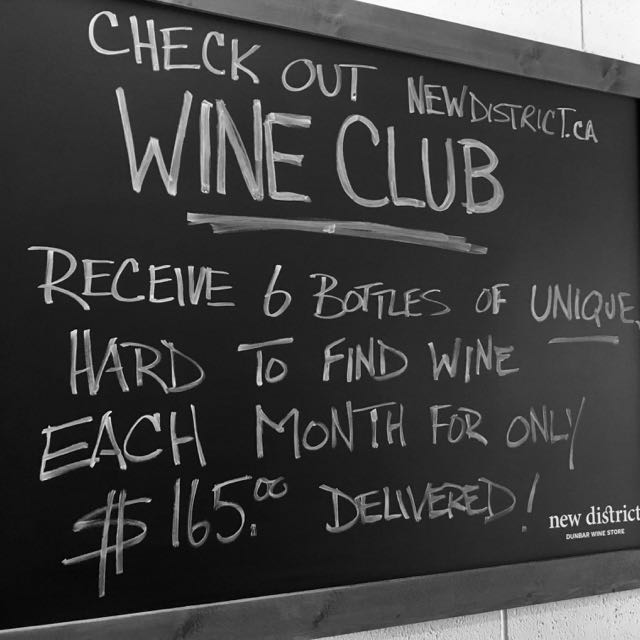 CHECK OUT NEWDISTRICT.CA
WINE CLUB
RECEIVE 6 BOTTLES OF UNIQUE,
HARD TO FIND WINE
EACH MONTH FOR ONLY
$165.00 DELIVERED!
new district
DUNBAR WINE STORE